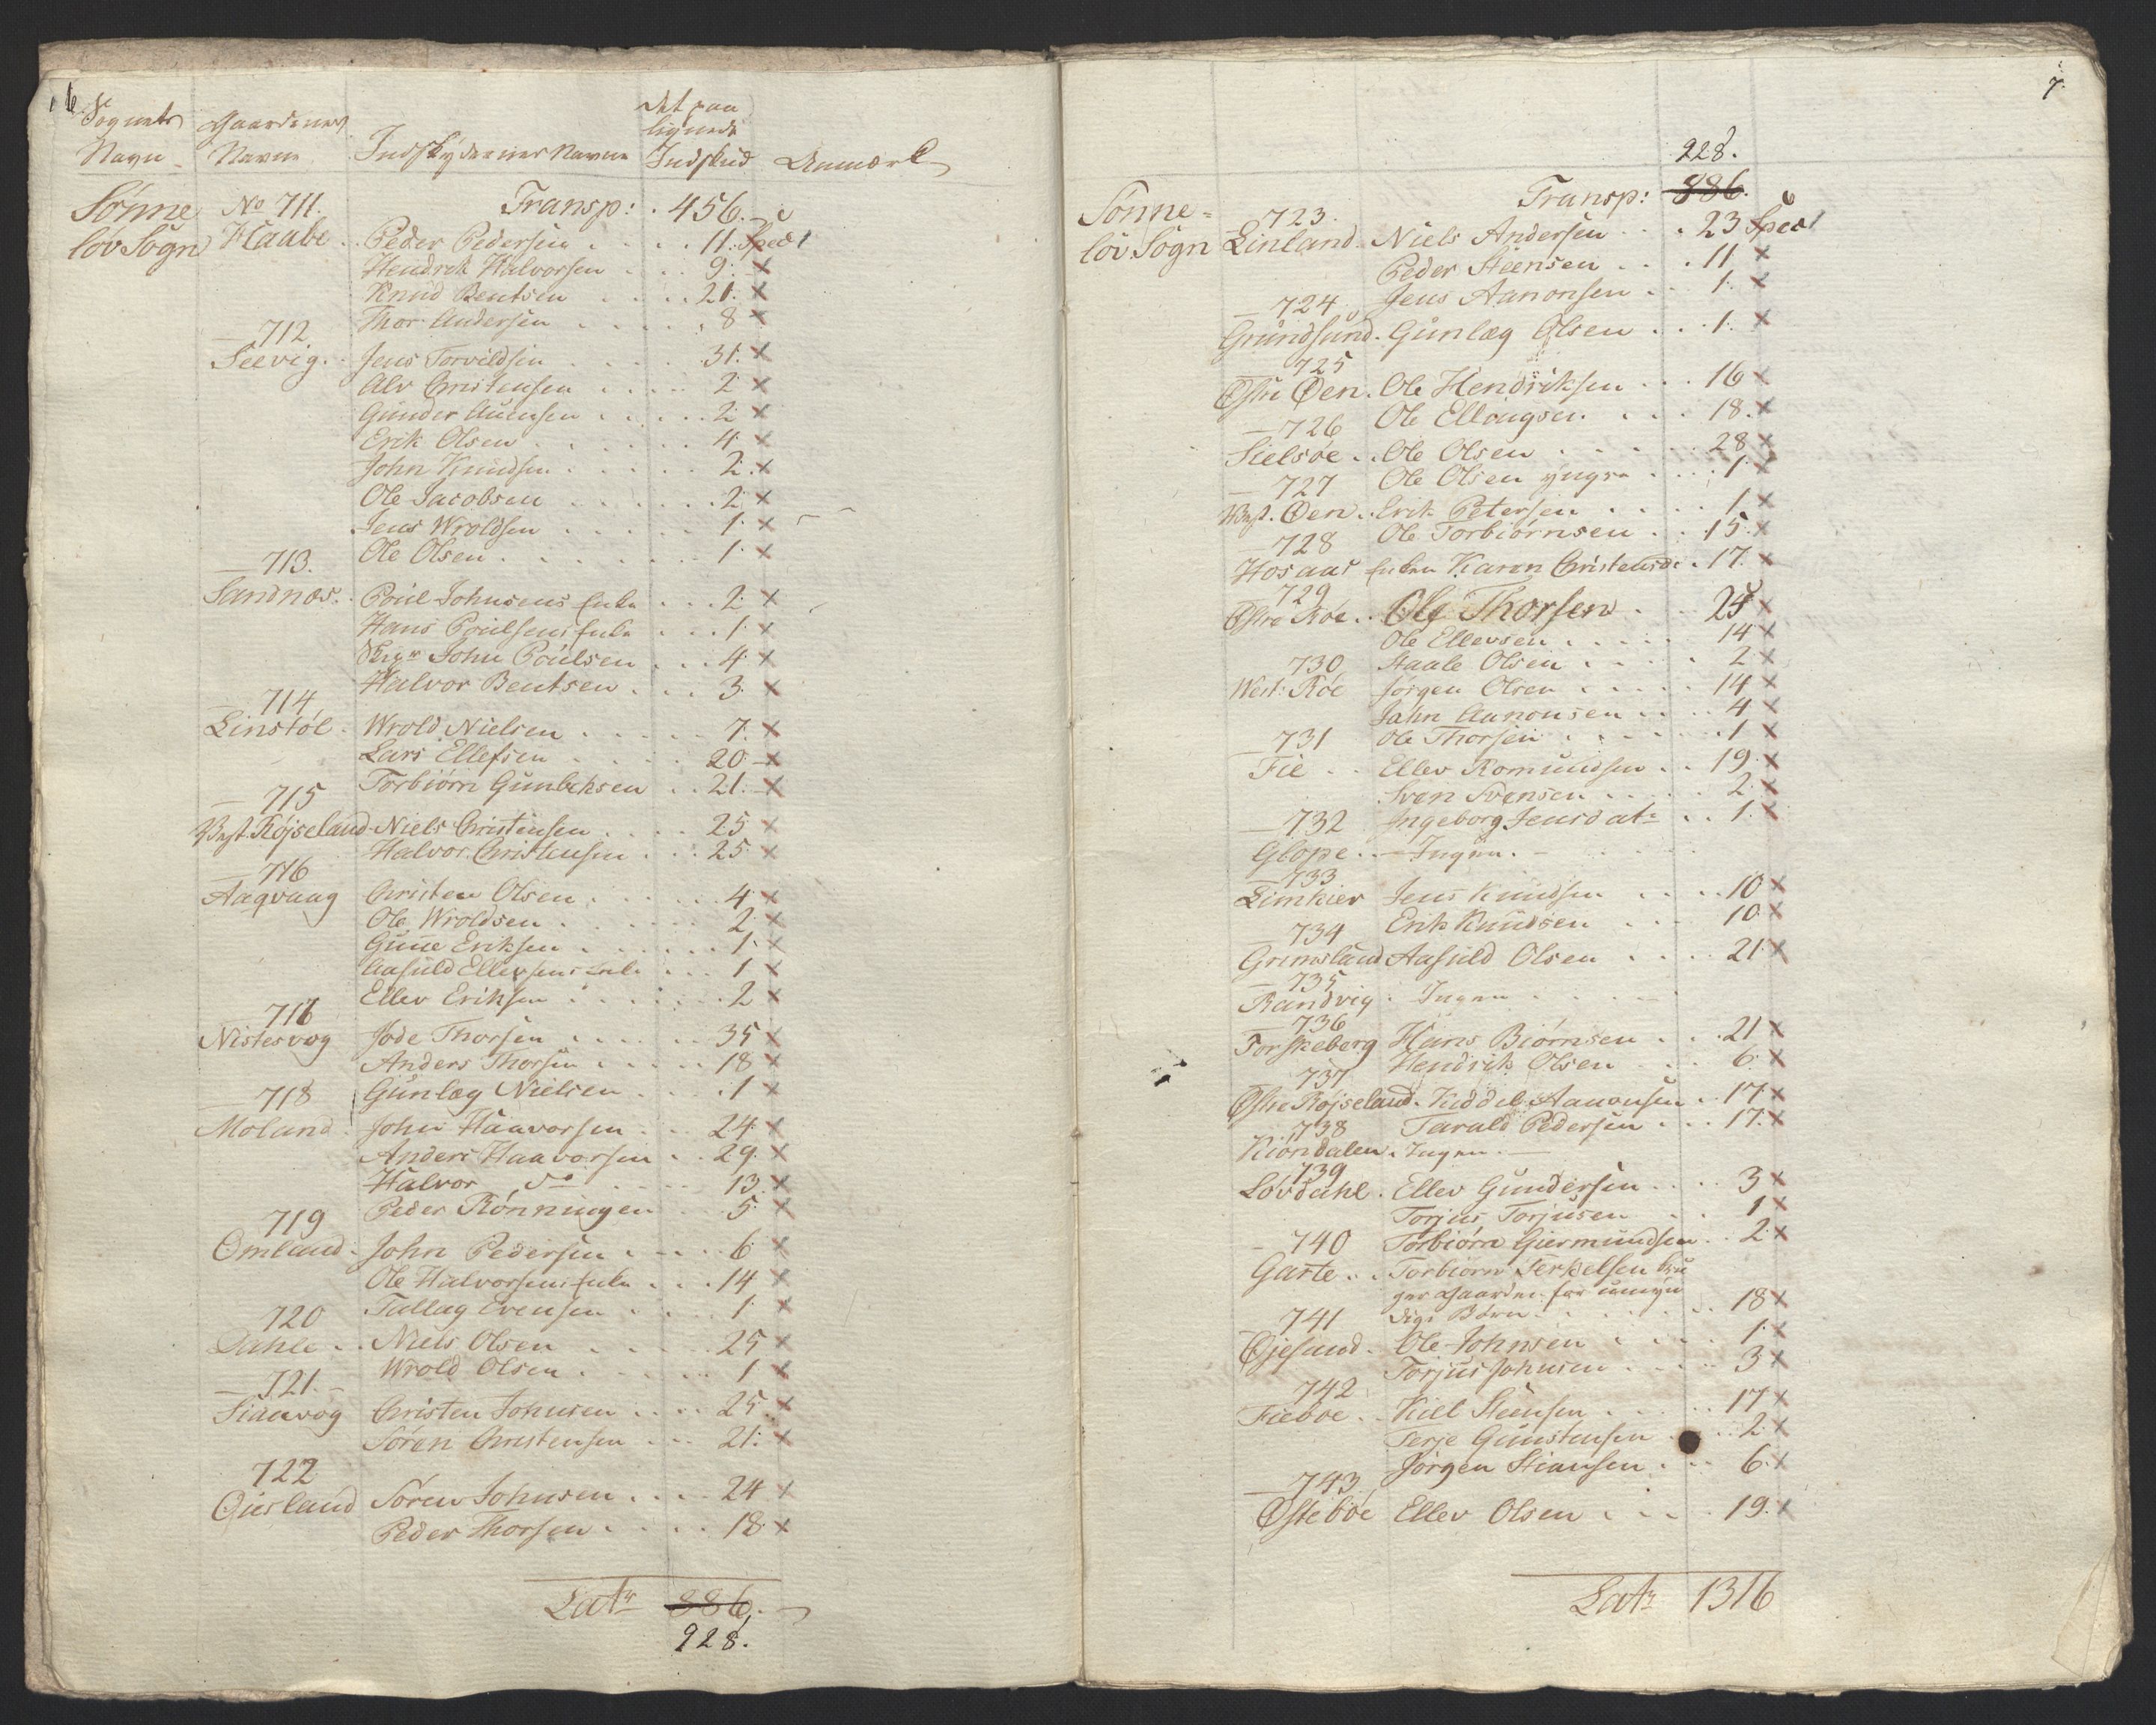 6
det paa
Sognets Gaardenes lignede
Navn Navne Indskydernes Navne Indskud Anmærk
Sønne No 711. Transp: 456.
løv Sogn Haabe Peder Pedersen 11. Spec
Hendrik Halvorsen 9. x
Knud Bentsen 21. x
Thor Andersen 8 x
712
Seevig Jens Torvildsen 31. x
Alv Christensen 2 x
Gunder Auensen 2 x
Erik Olsen 4 x
John Knudsen 2. x
Ole Jacobsen 2 x
Jens Wroldsen 1. x
Ole Olsen 1. x
713.
Sandnæs Poul Johnsens Enke 2. x
Hans Poulsens Enke 1. x
John Poulsen 4. x
Halvor Bentsen 3. x
714
Linstøl Wrold Nielsen 7. x
Lars Ellefsen 20 x
Torbiørn Gunleksen 21. x
715
Vest. Røjseland Niels Christensen 25 x
Halvor Christensen 25 x
716
Aaqvaag Christen Olsen 4 x
Ole Wroldsen 2 x
Gune Eriksen 1. x
Aasuld Ellefsens Enke 1 x
Ellev Eriksen 2 x
717
Nistesvog Jode Thorsen 35 x
Anders Thorsen 18 x
Gunleg Nielsen 1 x
718
Moland John Haavorsen 24. x
Anders Haavorsen 29. x
Halvor do 13. x
Peder Rønningen 5. x
719
Omland John Pedersen 6 x
Ole Halvorsens Enke 14 x
Tallag Evensen 1. x
720
Dahle Niels Olsen 25 x
Wrold Olsen 1 x
721.
Sidevog Christen Johnsen 25. x
Søren Christensen 21. x
722
Giesland Søren Johnsen 24 x
Peder Thorsen 18. x
Latr 886.
928.
7.
928.
Transp: 886.
Sønne=
løv Sogn 723. Linland Niels Andersen 23 Spec
Peder Steensen 11 x
Jens Aanonsen 1. x
724
Grundsund Gunlæg Olsen 1. x
725
Østre Øen Ole Hendriksen 16 x
Ole Ellingsen 18. x
726
Sielsøe Ole Olsen 28 x
Ole Olsen yngre 1. x
727
Vest. Øen Erik Petersen 1 x
Ole Torbiørnsen 15. x
728
Hosaas Enken Karen Christensd: 17. x
729
Østre Røe Ole Thorsen 25 x
Ole Ellevsen 14 x
Staale Olsen 2 x
730
West: Røe Jørgen Olsen 14 x
John Aanonsen 4 x
Ole Thorsen 1 x
731
Fie Ellev Romundsen 19. x
Sven Svensen 2. x
Ingeborg Jensdatr 1. x
732
Glope Ingen.
733
Limkier Jens Knudsen 10 x
Erik Knudsen 10 x
734
Grimsland Aasuld Olsen 21 x
735
Randvig Ingen
736
Torskeberg Hans Biørnsen 21 x
Hendrik Olsen 6. x
737
Østre Røjseland Kiddel Aanonsen 17. x
Tarald Pedersen 17. x
738
Kiøndalen Ingen.
739
Løvdahl Ellev Gundersen 3 x
Torjus Torjusen 1 x
Torbiørn Giermundsen 2. x
740
Garte Torbiørn Terkelsen bru
ger Gaarden for umyn
dige Børn 18 x
741
Øjesund Ole Johnsen 1. x
Torjus Johnsen 3 x
742
Fieboe Kiel Steensen 17 x
Terje Gunstensen 2 x
Jørgen Stiansen 6. x
743.
Østebøe Ellev Olsen 19. x
Latr 1316